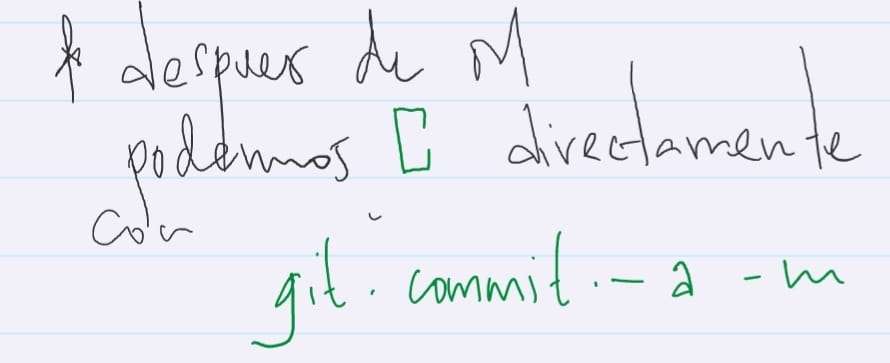 * despues de M
podemos C directamente
con
git . commit . - a - m